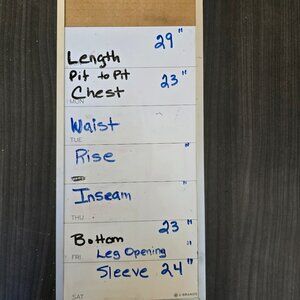 Length 29"
Pit to Pit 23"
Chest
MON
Waist
TUE
Rise "
Inseam "
THU
Bottom 23"
FRI Leg Opening "
Sleeve 24"
SAT U BRANDS